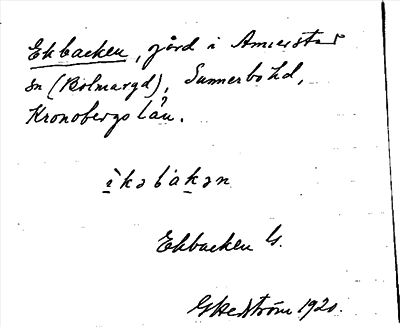 Ekbacken, gård i Annerstad
sn (Bolmaryd), Sunnerbo hd,
Kronobergs län.
ìkəbákən
Ekbacken G.
GHedström 1920.